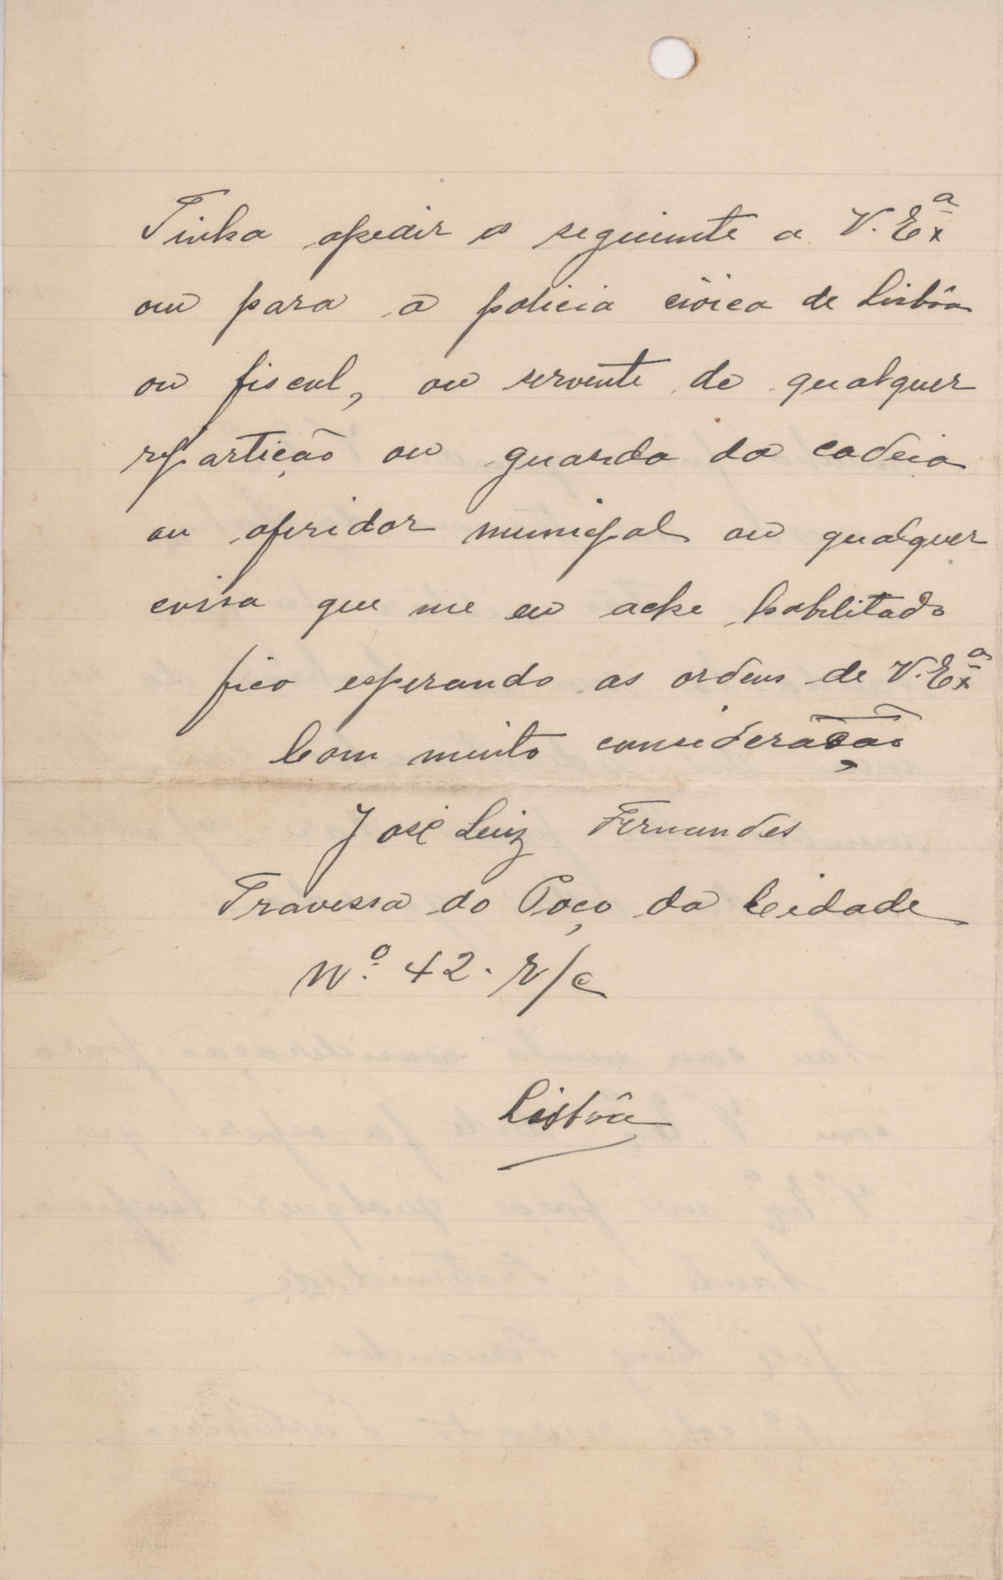 Tinha apedir o seguimte a V. Exª
ou para a policia civica de Lisbôa
ou fiscal, ou servente de qualquer
repartição ou guarda da cadeia
ou aferidor municipal ou qualquer
coisa que me eu ache habilitado
fico esperando as ordens de V. Exª
Com muito consideração
José Luiz Fernandes
Travessa do Poço da Cidade
Nº 42. r/c
Lisbôa